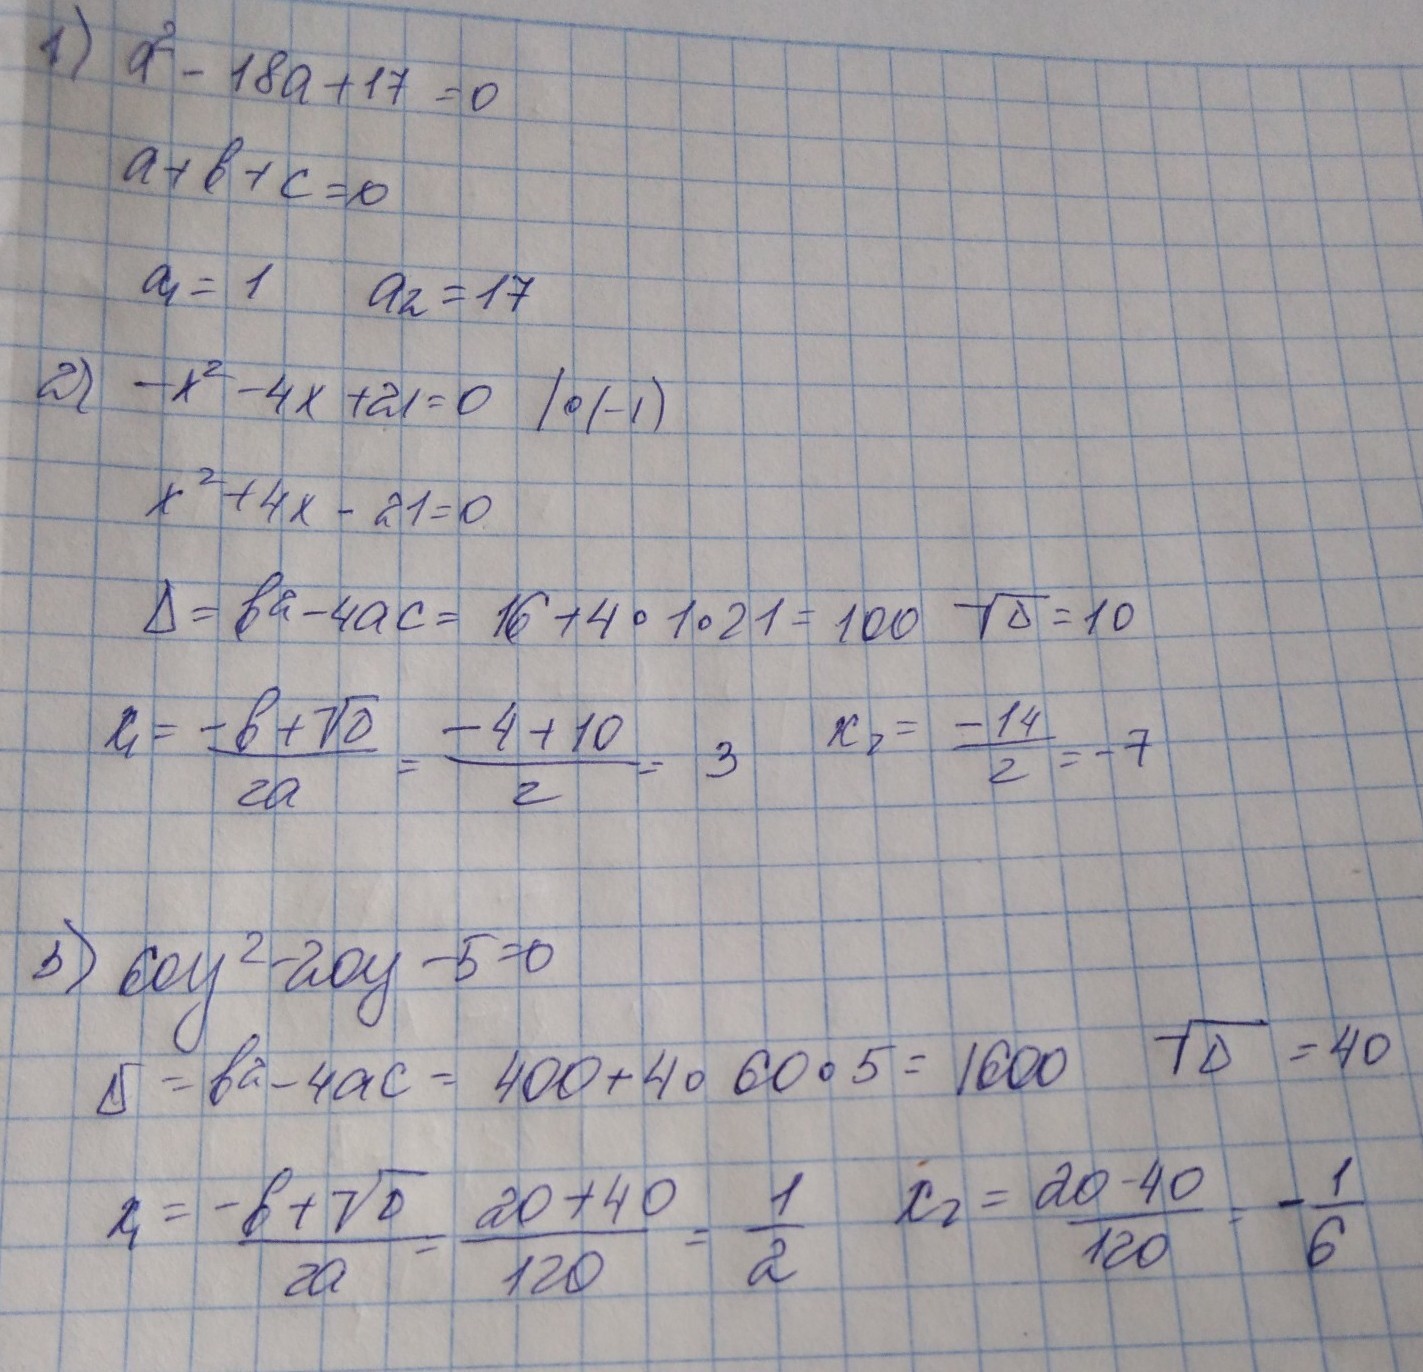 1) a² - 18a + 17 = 0
a + b + c = 0
a₁ = 1 a₂ = 17
2) -x² - 4x + 21 = 0 |∘(-1)
x² + 4x - 21 = 0
Δ = b² - 4ac = 16 + 4∘1∘21 = 100 √D = 10
x₁ = (-b + √D)/2a = (-4 + 10)/2 = 3 x₂ = -14/2 = -7
3) 60y² - 20y - 5 = 0
Δ = b² - 4ac = 400 + 4∘60∘5 = 1600 √D = 40
x₁ = (-b + √D)/2a = (20 + 40)/120 = 1/2 x₂ = (20 - 40)/120 = -1/6